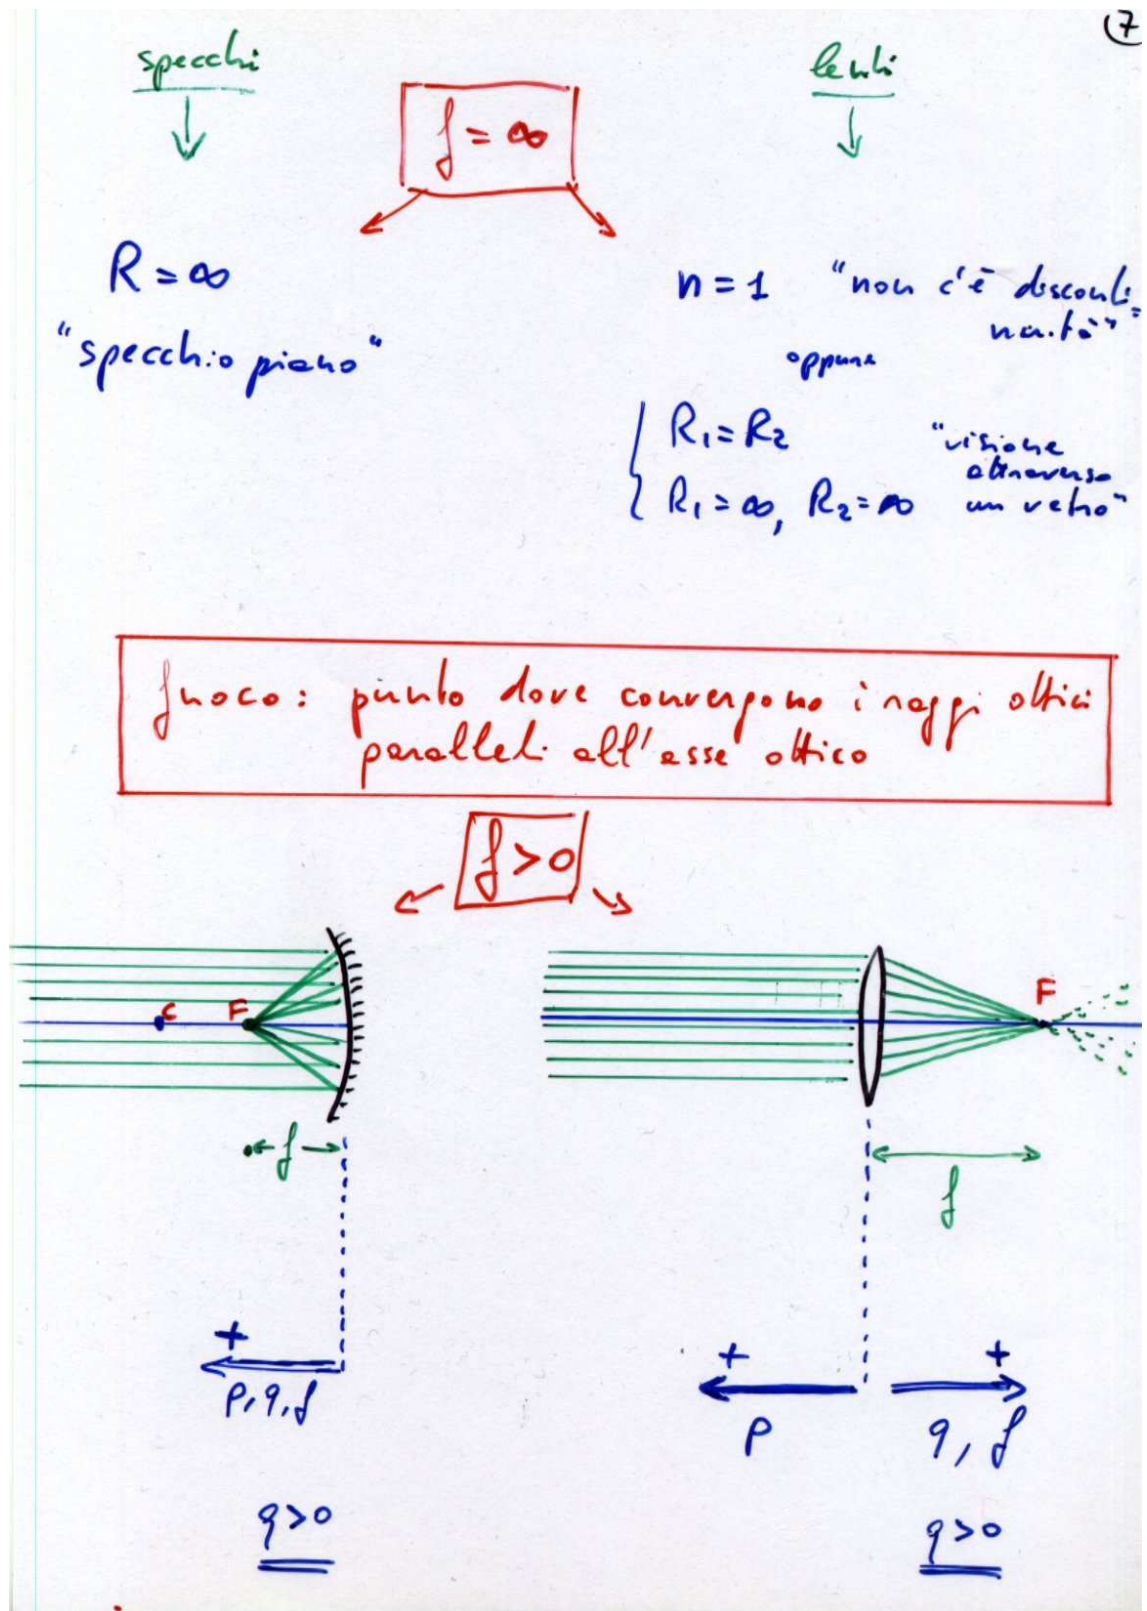 7
specchi
lenti
f = ∞
R = ∞
"specchio piano"
n = 1 "non c'è disconti=
nuità"
oppure
R₁ = R₂
R₁ = ∞, R₂ = ∞
"visione
attraverso
un vetro"
fuoco: punto dove convergono i raggi ottici
paralleli all'asse ottico
f > 0
C F
F
f
f
+
p, q, f
+
p
+
q, f
q > 0
q > 0